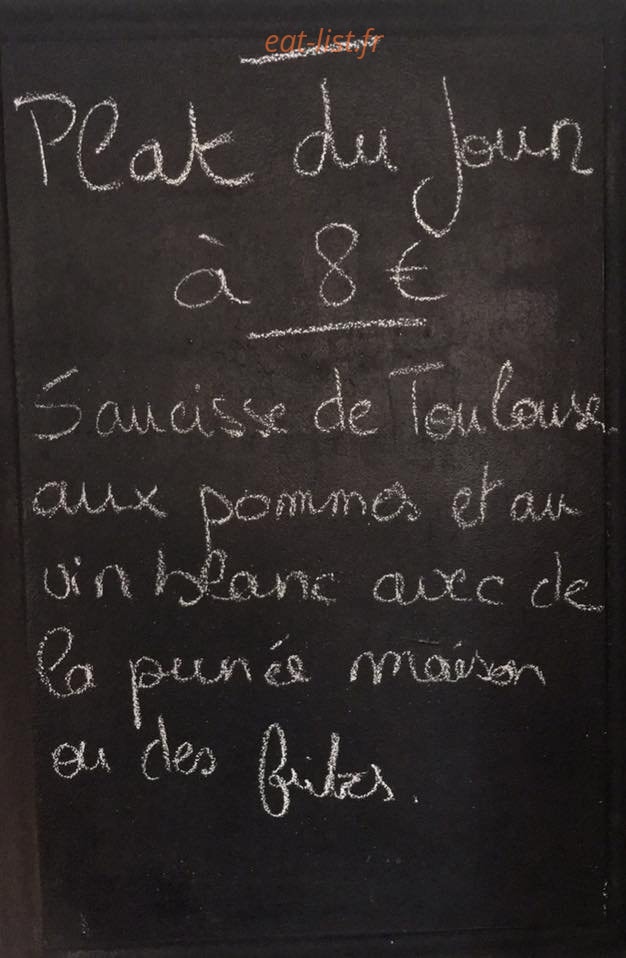 eat-list.fr
Plat du Jour
à 8 €
Saucisse de Toulouse
aux pommes et au
vin blanc avec de
la purée maison
ou des frites.